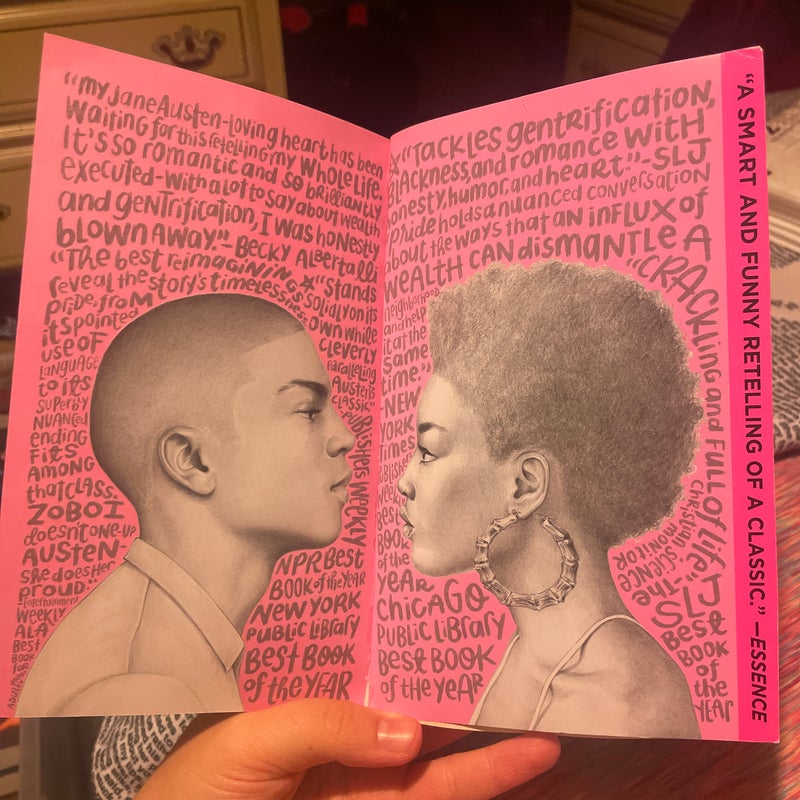 “my Jane Austen-loving heart has been
waiting for this retelling my whole life.
It's so romantic and so brilliantly
executed-with a lot to say about wealth
and gentrification, I was honestly
blown away.”-Becky Albertalli
“The best reimaginings ★“Stands
reveal the story's timelessness solidly on its
Pride, from own while
its pointed cleverly
use of paralleling
language Austen's
to its classic.”
superbly Publishers Weekly
nuanced
ending
fits
among
that class.
ZOBOI
doesn't one-up
AUSTEN-
she does her
proud.”
-Entertainment
Weekly
ALA
Best
Book
for
NPR Best
Book of the Year
New York
Public Library
Best Book
of the Year
★“Tackles gentrification,
Blackness, and romance with
honesty, humor, and heart.”-SLJ
“Pride holds a nuanced conversation
about the ways that an influx of
wealth can dismantle a
neighborhood
and help
it at the
same
time.”
-New
York
Times
Publishers
Weekly
Best
Book
of the
Year
Chicago
Public Library
Best Book
of the Year
“Crackling and full of life.”
-The
Christian Science
Monitor
SLJ
Best
Book
of
the
Year
“A SMART AND FUNNY RETELLING OF A CLASSIC.” —ESSENCE